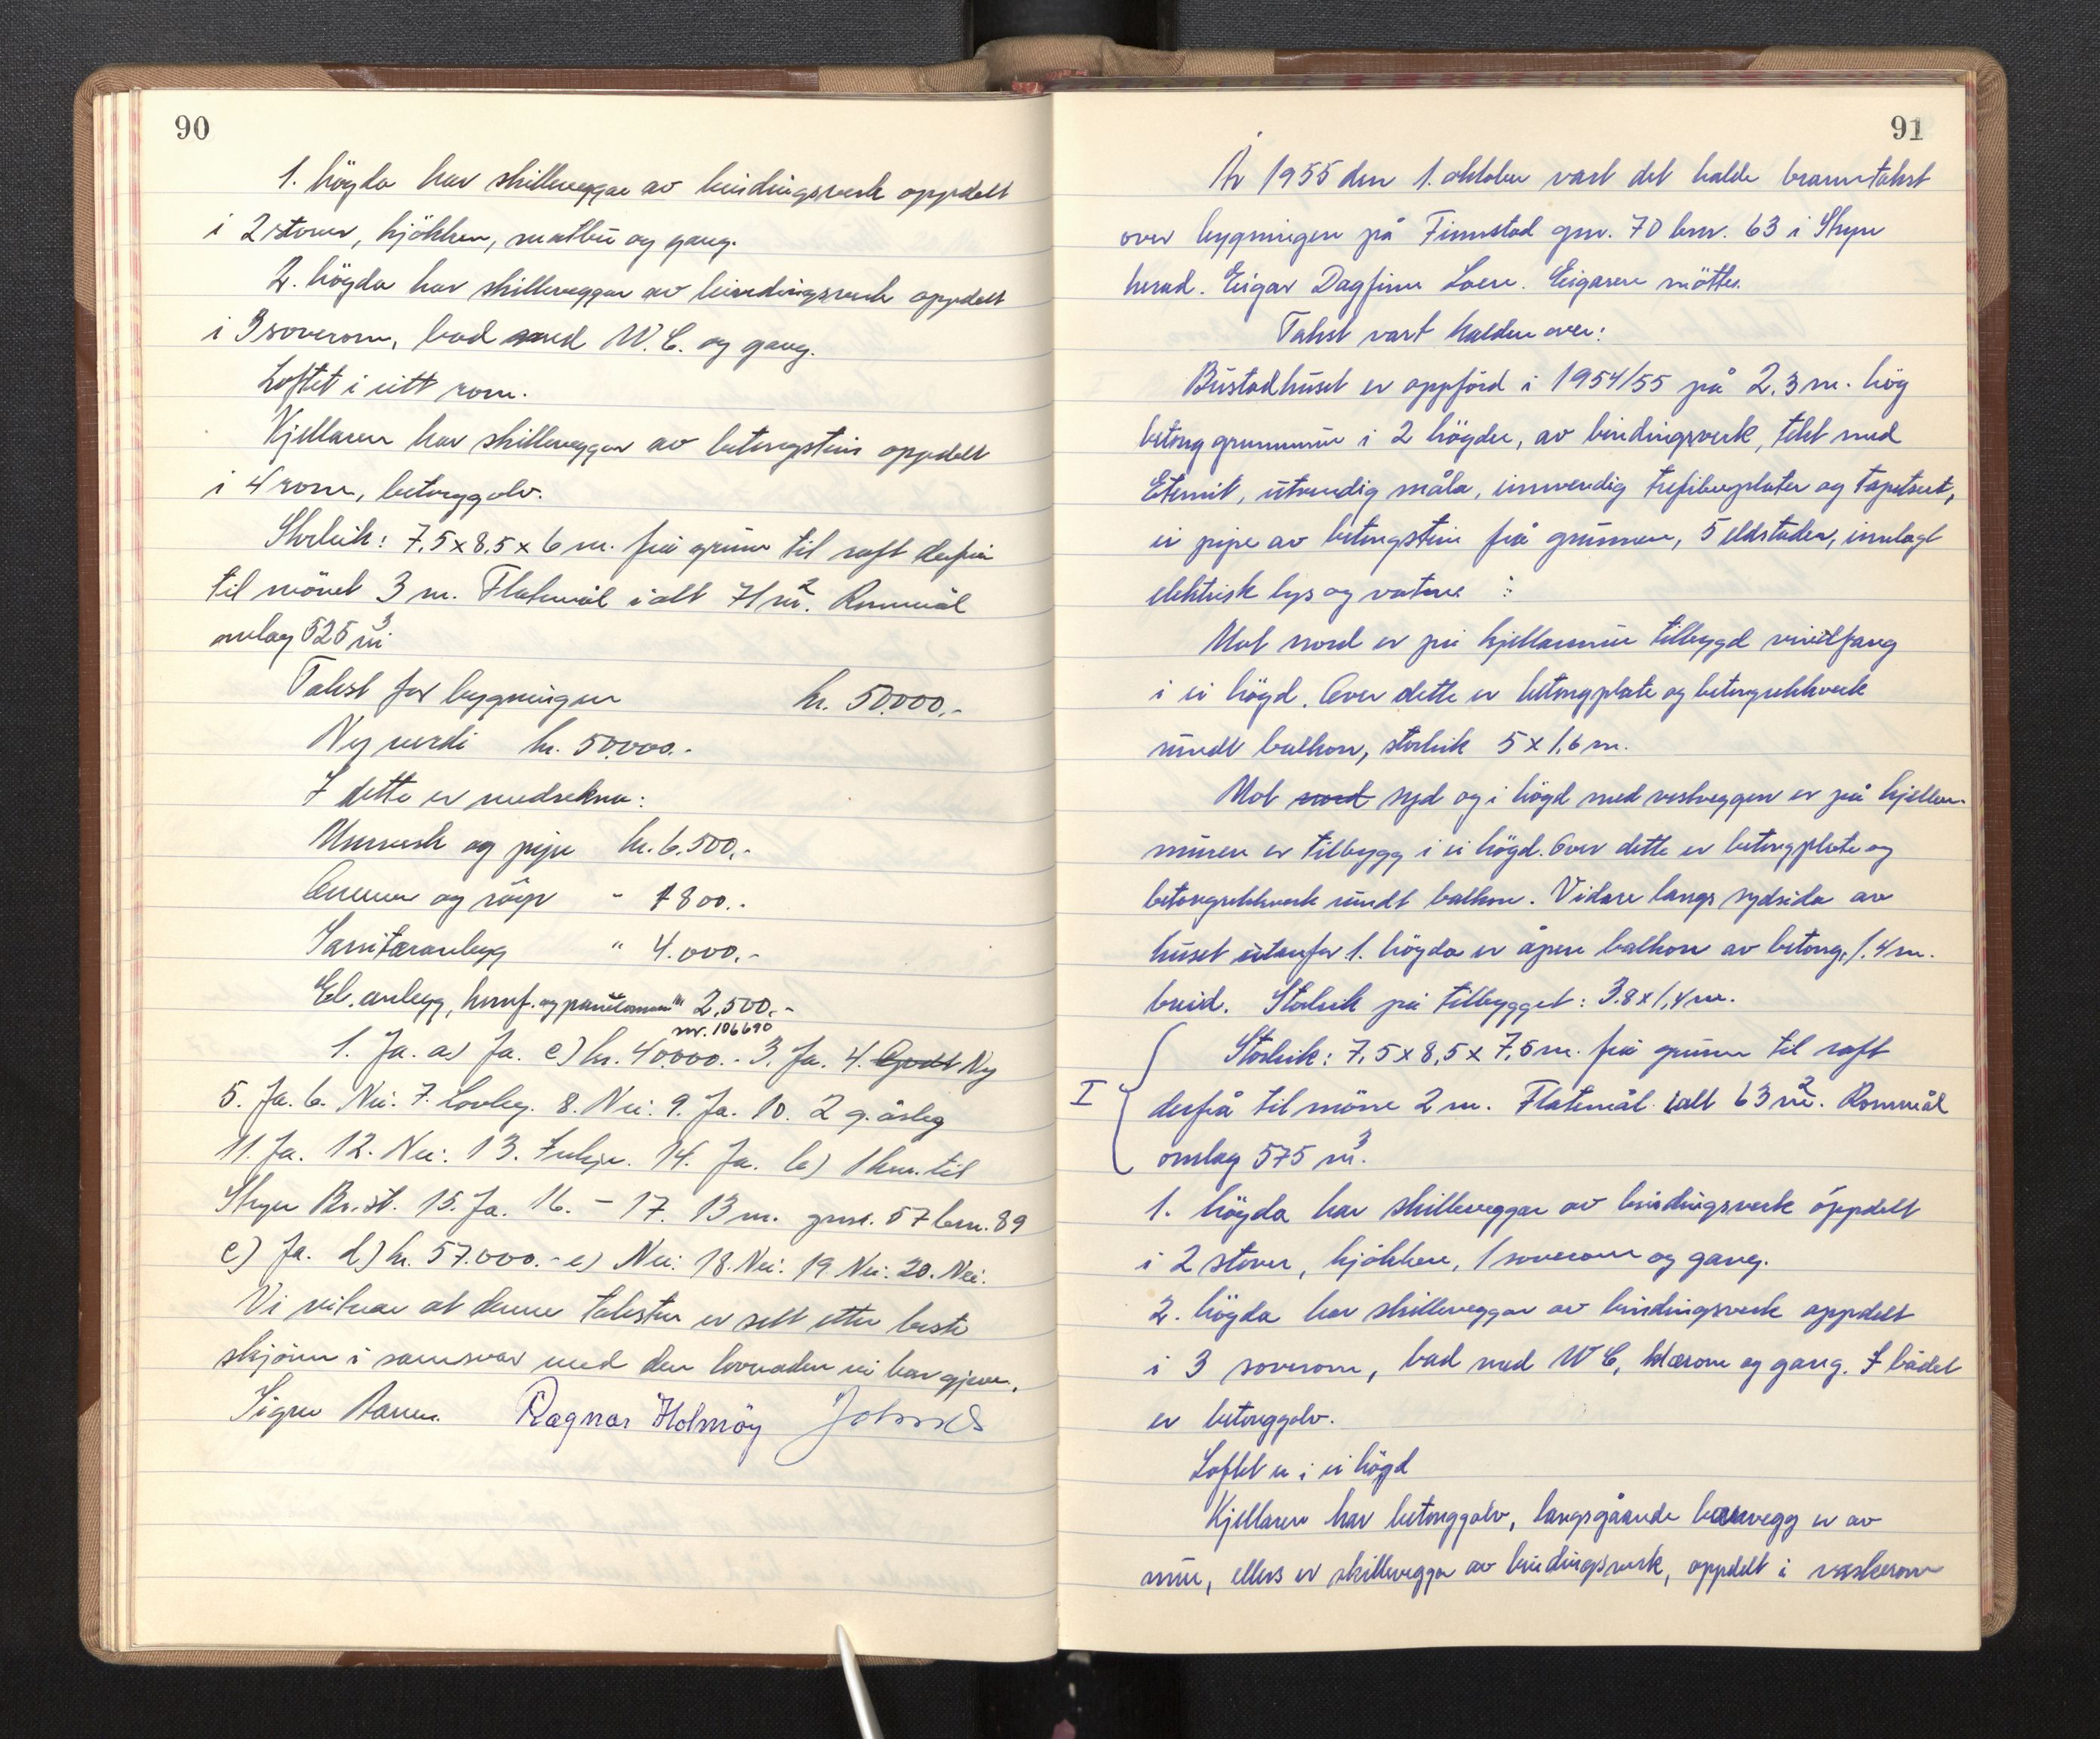 90
1. högda har skilleveggar av bindingsverk oppdelt
i 2 stover, kjökken, matbu og gang.
2. högda har skilleveggar av bindingsverk oppdelt
i 3 soverom, bad med W.C. og gang.
Loftet i eitt rom.
Kjellaren har skilleveggar av betongstein oppdelt
i 4 rom, betonggolv.
Storleik: 7,5 x 8,5 x 6 m. frå grunn til raft derfrå
til mönet 3 m. Flatemål i alt 71 m². Rommål
omlag 525 m³
Takst for bygningen kr. 50.000.-
Ny verdi kr. 50.000.-
I dette er medrekna:
Murverk og pipe kr. 6.500,-
Omnar og röyr " 1800.-
Sanitæranlegg " 4.000.-
El. anlegg, komf. og panelomnar " 2.500.-
nr. 106690
1. Ja. a) Ja. c) kr. 40.000.- 3. Ja. 4. Godt Ny
5. Ja. 6. Nei. 7. Lovleg. 8. Nei. 9. Ja. 10. 2 g. årleg
11. Ja. 12. Nei. 13. Inkje. 14. Ja. b) 1 km. til
Stryn Br.st. 15. Ja. 16. – 17. 13 m. gnr. 57 bnr. 89
c) Ja. d) kr. 57.000.- e) Nei. 18. Nei. 19. Nei. 20. Nei.
Vi vitnar at denne taksten er sett etter beste
skjönn i samsvar med den lovnaden vi har gjeve.
Ragnar Holmöy
91
År 1955 den 1. oktober vart det halde branntakst
over bygningen på Finnstad gnr. 70 bnr. 63 i Stryn
herad. Eigar Dagfinn Loen. Eigaren mötte.
Takst vart halden over:
Bustadhuset er oppförd i 1954/55 på 2,3 m. hög
betong grunnmur i 2 högder, av bindingsverk, tekt med
Eternit, utvendig måla, innvendig trefiberplater og tapetsert,
ei pipe av betongstein frå grunnen, 5 eldstader, innlagt
elektrisk lys og vatne :
Mot nord er på kjellarmur tilbygd vindfang
i ei högd. Over dette er betongplate og betongrekkverk
rundt balkon, storleik 5 x 1,6 m.
Mot nord syd og i högd med vestveggen er på kjellar-
muren er tilbygg i ei högd. Over dette er betongplate og
betongrekkverk rundt balkon. Vidare langs sydsida av
huset utanfor 1. högda er åpen balkon av betong, 1.4 m.
breid. Storleik på tilbygget: 3.8 x 1,4 m.
I Storleik: 7,5 x 8,5 x 7,5 m. frå grunn til raft
derfrå til möne 2 m. Flatemål ialt 63 m². Rommål
omlag 575 m³.
1. högda har skilleveggar av bindingsverk oppdelt
i 2 stover, kjökken, 1 soverom og gang.
2. högda har skilleveggar av bindingsverk oppdelt
i 3 soverom, bad med W C, klærom og gang. I badet
er betonggolv.
Loftet er i ei högd
Kjellaren har betonggolv, langsgåande bærevegg er av
mur, ellers er skillevegger av bindingsverk, oppdelt i vaskerom